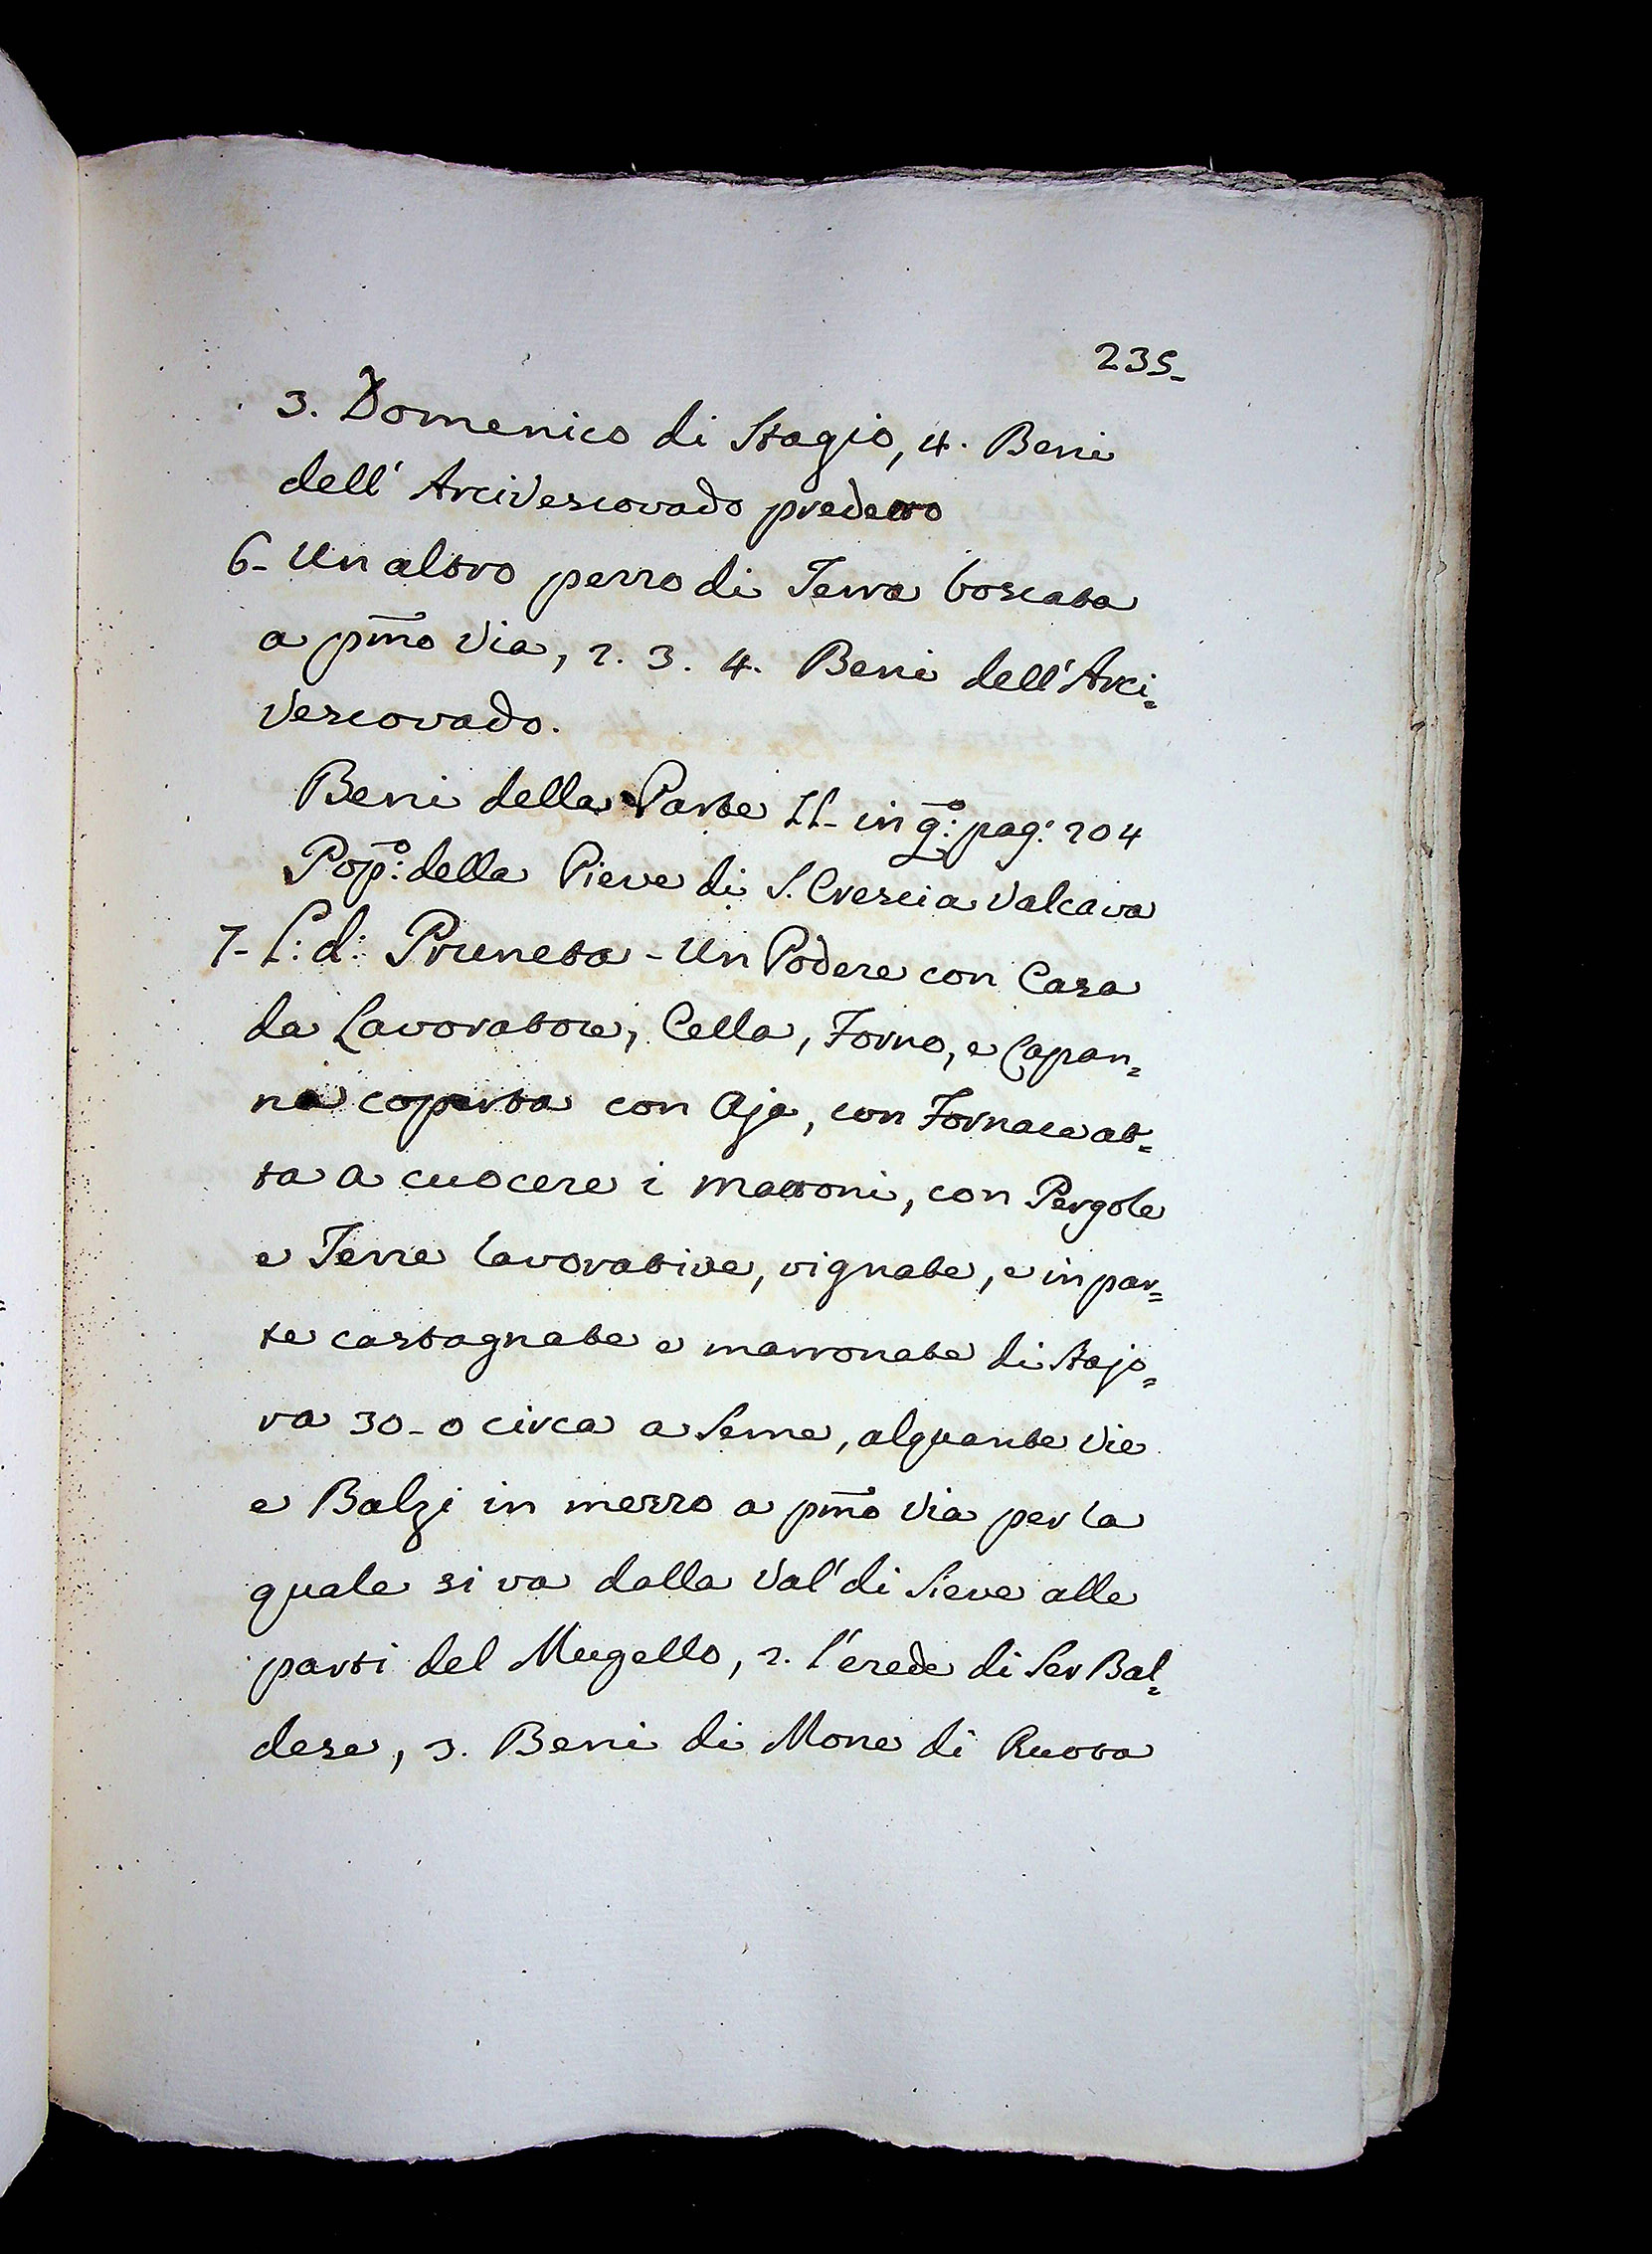 235-
3. Domenico di Stagio, 4. Beni
dell' Arcivescovado predetto
6- Un altro pezzo di Terra boscata
a pm̃o Via, 2. 3. 4. Beni dell'Arci=
vescovado.
Beni della Parte II- in q̃.º: pag: 204
Pop.º: della Pieve di S. Crescia Valcava
7- L: d: Pruneta - Un Podere con Casa
da Lavoratore, Cella, Forno, e Capan=
na coperta con Aja, con Fornace at=
ta a cuocere i mattoni, con Pergole
e Terre lavorative, vignate, e in par=
te castagnate e marronate di Stajo=
ra 30- o circa a Seme, alquante Vie
e Balzi in mezzo a pm̃o Via per la
quale si va dalla Val' di Sieve alle
parti del Mugello, 2. l'erede di Ser Bal=
dese, 3. Beni di Mone di Ruota